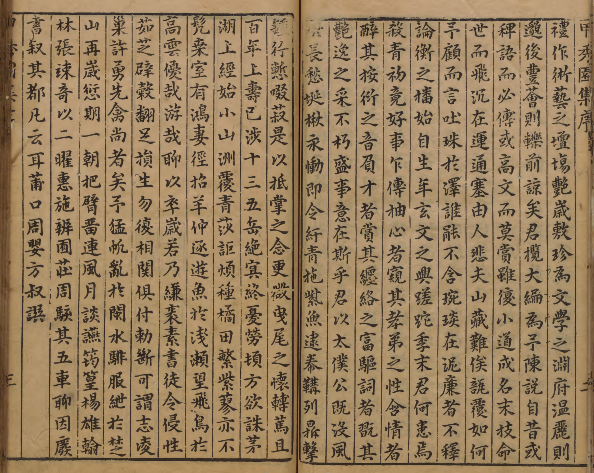 甲秀園集序
禮作術藝之壇塲艷歲敷珍為文學之淵府溫麗則
邈後曹薈則轢前諒矣君攬大編為予陳說自昔或
稗語而必傳或高文而莫賞雖優小道成名末技命
世而飛沉在運通塞由人悲夫山藏難俟覆如何
予顧而言吐珠於澤誰能不含琬琰在泥廉者不釋
論衡之播始自生年玄文之興蹉跎季末君何患焉
殺青初竟好事乍傳抽心者窺其孝弟之性含情者
醉其按衍之音負才者賞其纏絡之富驅詞者既其
艷逸之采不朽盛事意在斯乎君以太僕公既沒風
木長愁埏楸永慟即令紆青拖紫魚逮泰鞲列鼎擊
鐘行慙啜菽是以抵掌之念更微曳尾之懷轉篤且
百年上壽已涉十三五岳絕終憂勞頓方欲誅茅
湖上經始小山洲覆青莎詎煩種橘田繁紫蓼亦不
粲室有鴻妻徑招羊仲逐遊魚於淺瀨望飛鳥於
高雲優哉游哉聊以卒歲若乃縑裹素書徒令侵性
茹芝辟穀翻足損生勿復相關俱付勅斷可謂志凌
巢許勇先禽尚者矣予猛帆亂於閩水騑服紲於楚
山再歲愆期一朝把臂番連風月談讌筠篁楊雄翰
林張竦奇以二曜惠施辨囿莊周騐其五車聊因嚴
書叙其都凡云耳莆口周嬰方叔譔
三